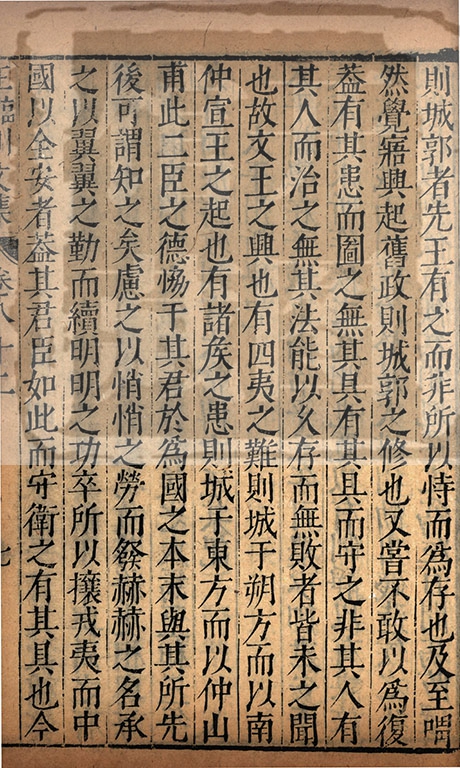 則城郭者先王有之而非所以恃而爲存也及至喟
然覺寤興起舊政則城郭之修也又嘗不敢以爲復
葢有其患而圖之無其具有其具而守之非其人有
其人而治之無其法能以久存而無敗者皆未之聞
也故文王之興也有四夷之難則城于朔方而以南
仲宣王之起也有諸矦之患則城于東方而以仲山
甫此二臣之德恊于其君於爲國之本末與其所先
後可謂知之矣慮之以悄悄之勞而發赫赫之名承
之以翼翼之勤而續明明之功卒所以攘戎夷而中
國以全安者葢其君臣如此而守衛之有其具也今
王臨川文集 卷八十二 七